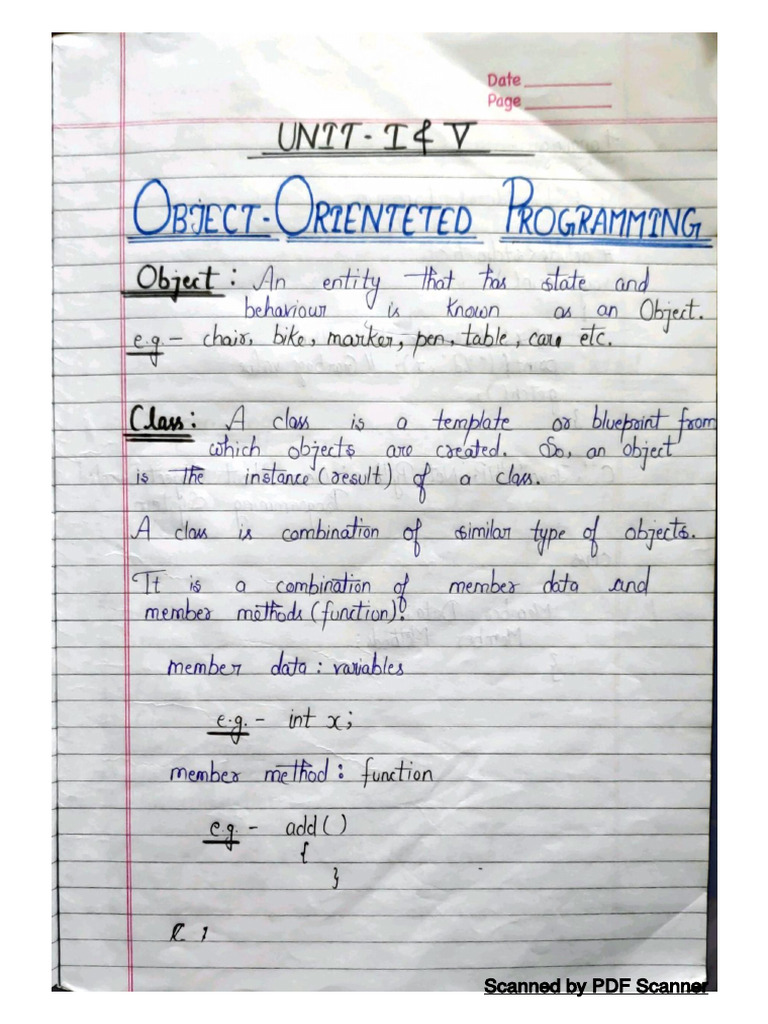 Date
Page
UNIT - I & V
OBJECT-ORIENTETED PROGRAMMING
Object : An entity that has state and
behaviour is known as an Object.
e.g. - chair, bike, marker, pen, table, car, etc.
Class : A class is a template or blueprint from
which objects are created. So, an object
is the instance (result) of a class.
A class is combination of similar type of objects.
It is a combination of member data and
member methods (function).
member data : variables
e.g. - int x;
member method : function
e.g. - add()
{
}
Scanned by PDF Scanner